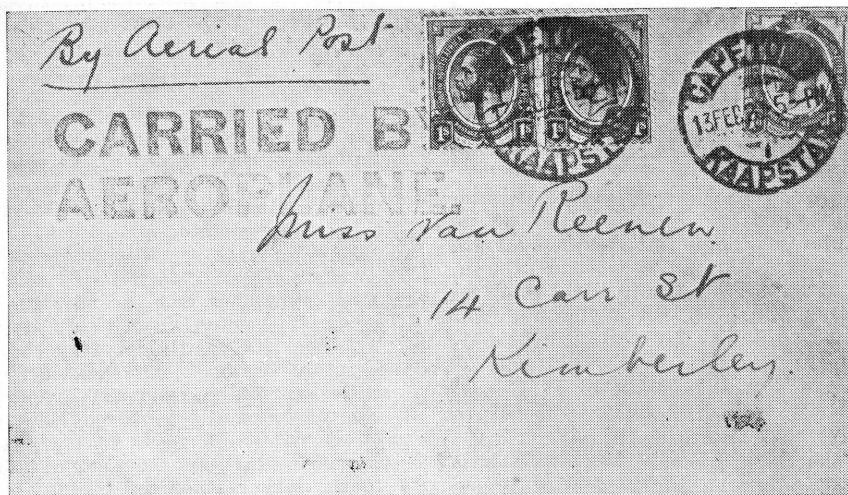 By Aerial Post
CARRIED BY
AEROPLANE.
CAPETOWN
13 FEB 5-PM
KAAPSTA
KAAPSTA
1d 1d 1d
Miss Van Reenen
14 Carr St
Kimberley.